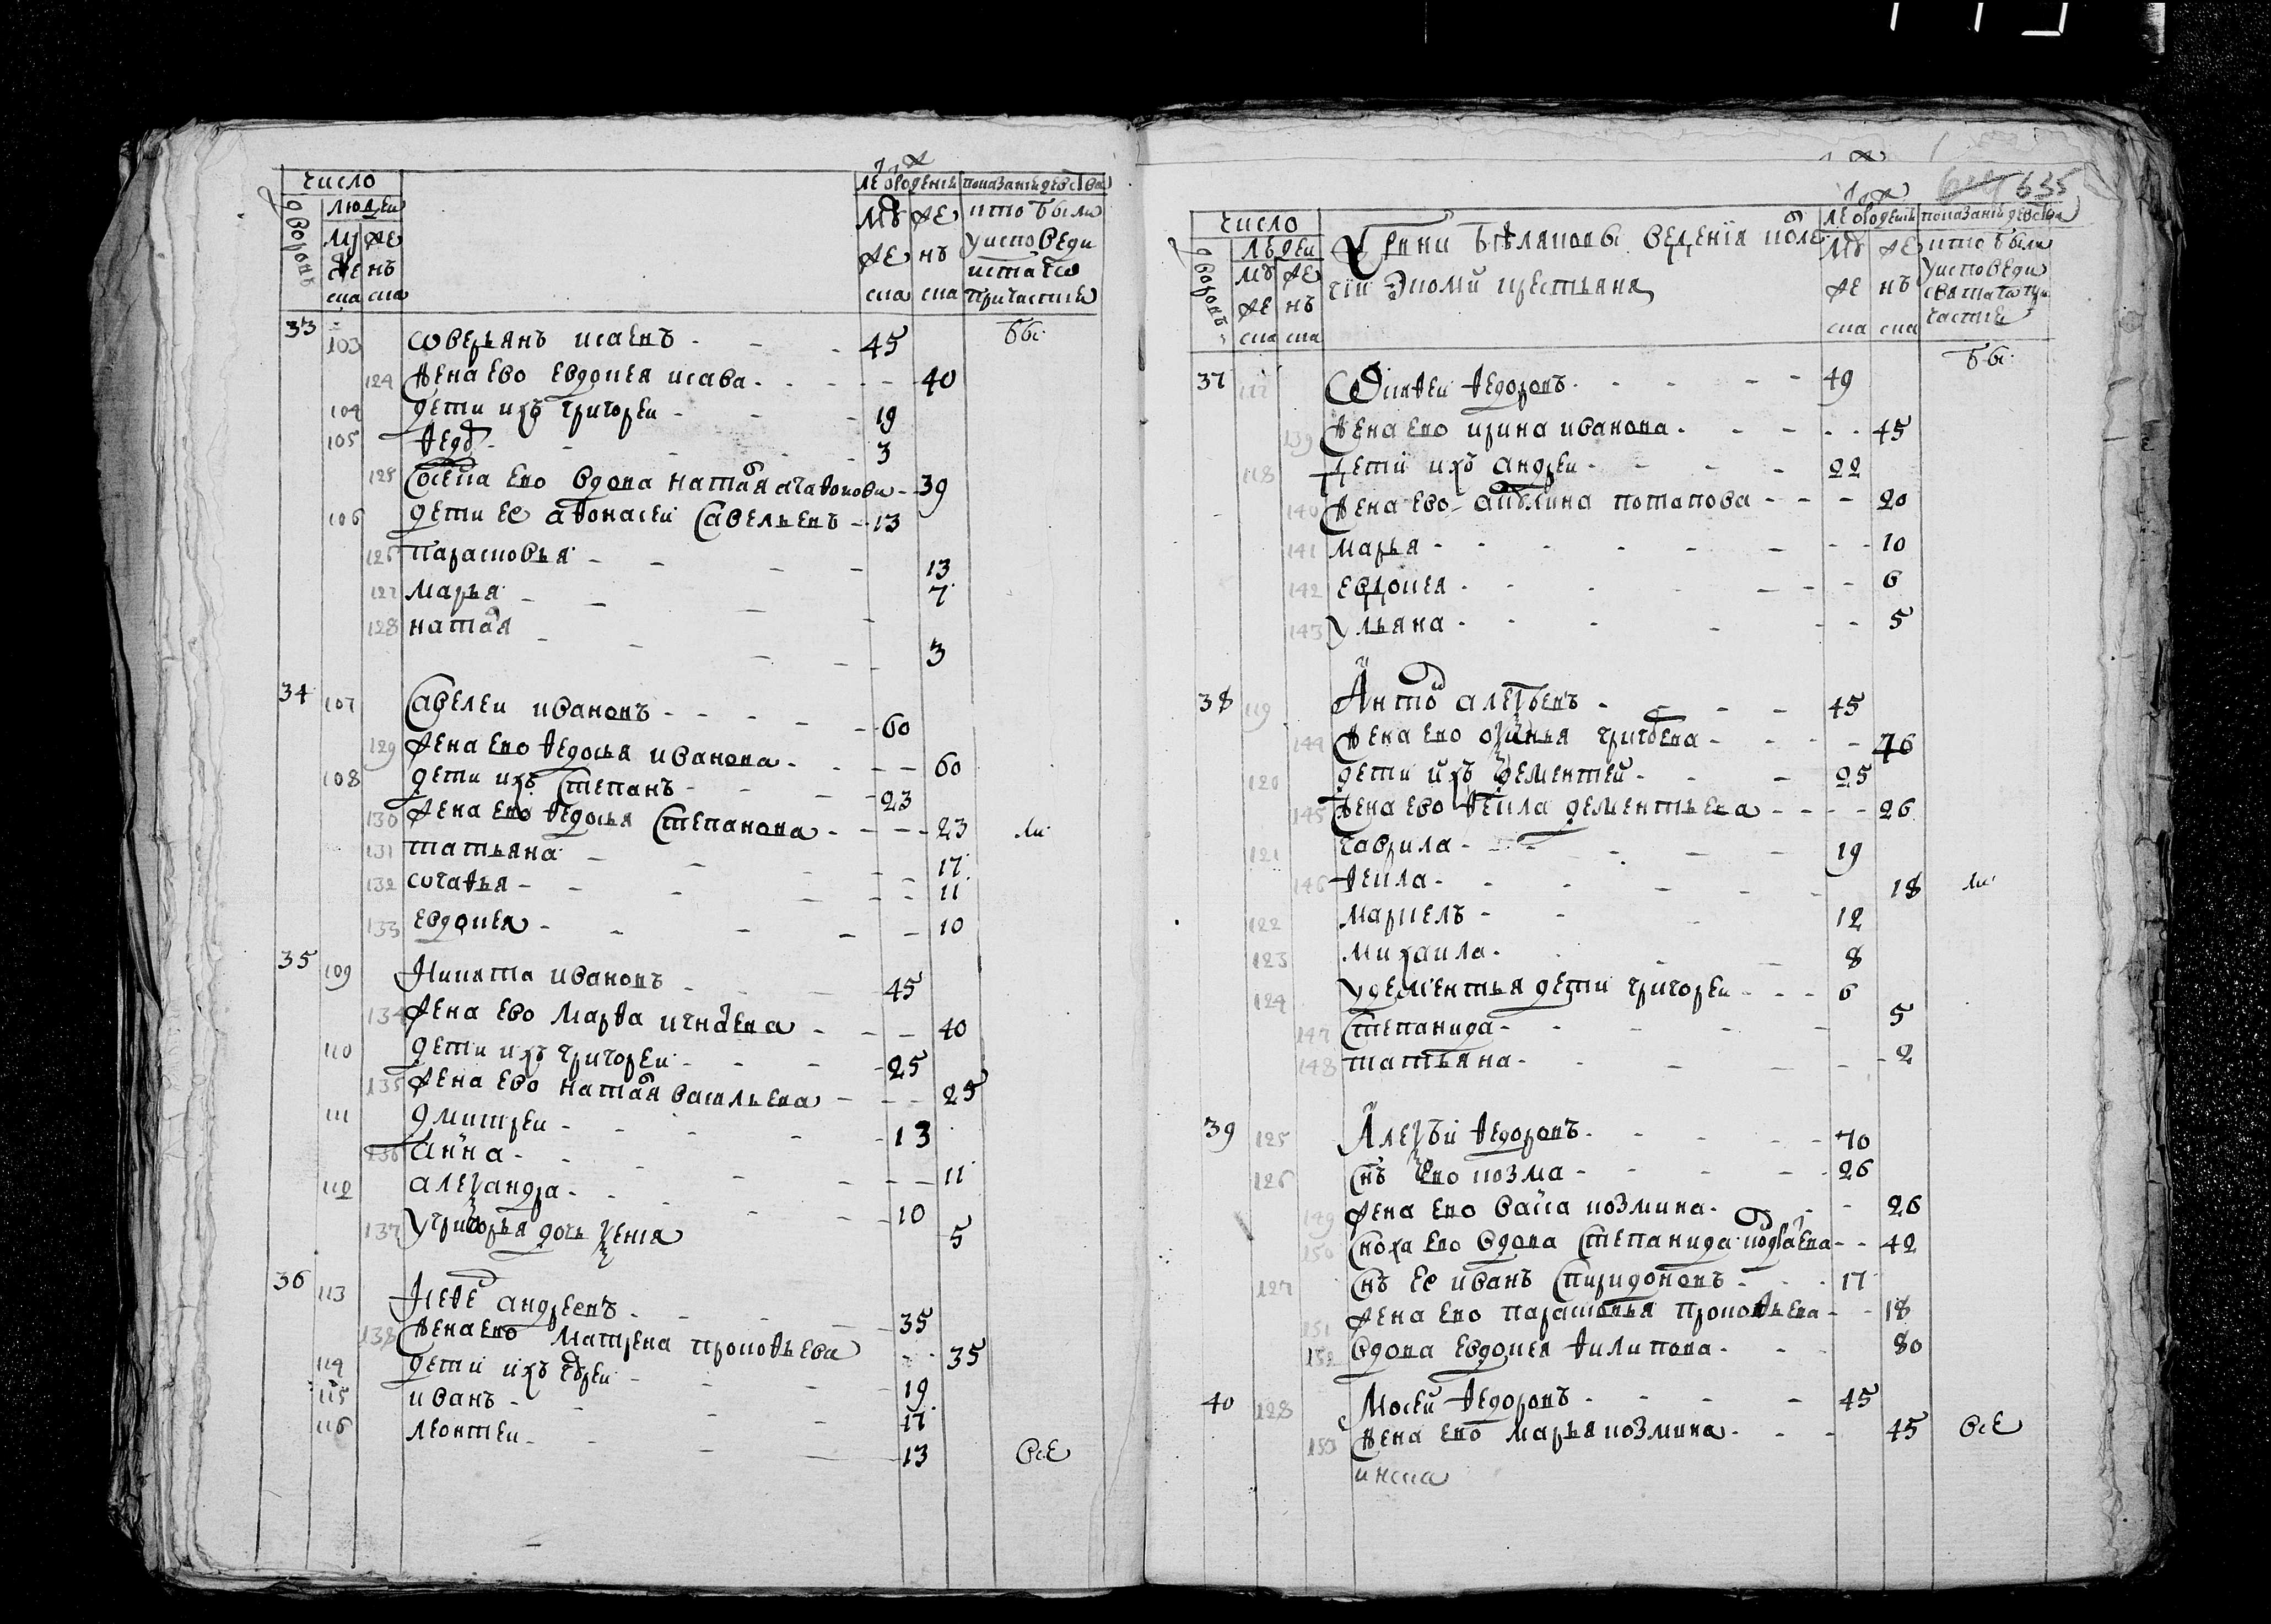 число
дворовъ
людеи
му же
же нъ
ска ска
лѣ рождениѣ показание действа
му же кто были
же нъ у исповеди
и стаго
ска ска причастия
33 103 Соверьянъ исаевъ 45 бы
124 жена ево евдокея исава 40
104 дети ихъ григореи 19
105 Ѳедо 3
125 ево вдова наталя агаѳонова 39
106 дети ее аѳонасеи Савельевъ 13
126 парасковья 13
127 марья 7
128 наталя 3
34 107 Савелеи ивановъ 60
129 жена ево ѳедосья иванова 60
108 дети ихъ Степанъ 23
130 жена ево ѳедосья Степанова 23 ли
131 татьяна 17
132 согаѳья 11
133 евдокея 10
35 109 Никита ивановъ 45
134 жена ево марѳа игнаева 40
110 дети ихъ григореи 25
135 жена ево наталя васильева 25
111 дмитреи 13
136 анна 11
112 алеѯандра 10
137 у григорья дочь ѯения 5
36 113 Неѳе андреевъ 35
138 жена ево матрена прокоѳьева 35
114 дети ихъ гуреи 19
115 иванъ 17
116 леонтеи 13 все
635
число
дворовъ
людеи
му же
же нъ
ска ска
бѣляковы ведения коле
гии економи крестьяня
лѣ рождениѣ показание действа
му же кто были
же нъ у исповеди
ска ска святаго при
частия
37 117 Ѳедоровъ 49 бы
139 жена ево ирина иванова 45
118 дети ихъ андреи 22
140 жена ево акулина потапова 20
141 марья 10
142 евдокея 6
143 ульяна 5
38 119 Анто алеѯеевъ 45
144 жена ево огриѳья григоева 46
120 дети ихъ дементеи 25
145 жена ево ѳекла дементьева 26
121 гаврила 19
146 ѳекла 18 ли
122 маркелъ 12
123 михаила 8
124 у дементья дети григореи 6
147 Степанида 5
148 татьяна 2
39 125 Алеѯѣи ѳедоровъ 70
126 Снъ ево козма 26
149 жена ево васса козмина 26
150 Сноха ево вдова Степанида кодраева 42
127 Снъ ее иванъ Спиридоновъ 17
151 жена ево парасковья прокоѳьева 18
152 вдова евдокея ѳилипова 80
40 128 Мосеи ѳедоровъ 45
153 жена ево марья козмина 45 все